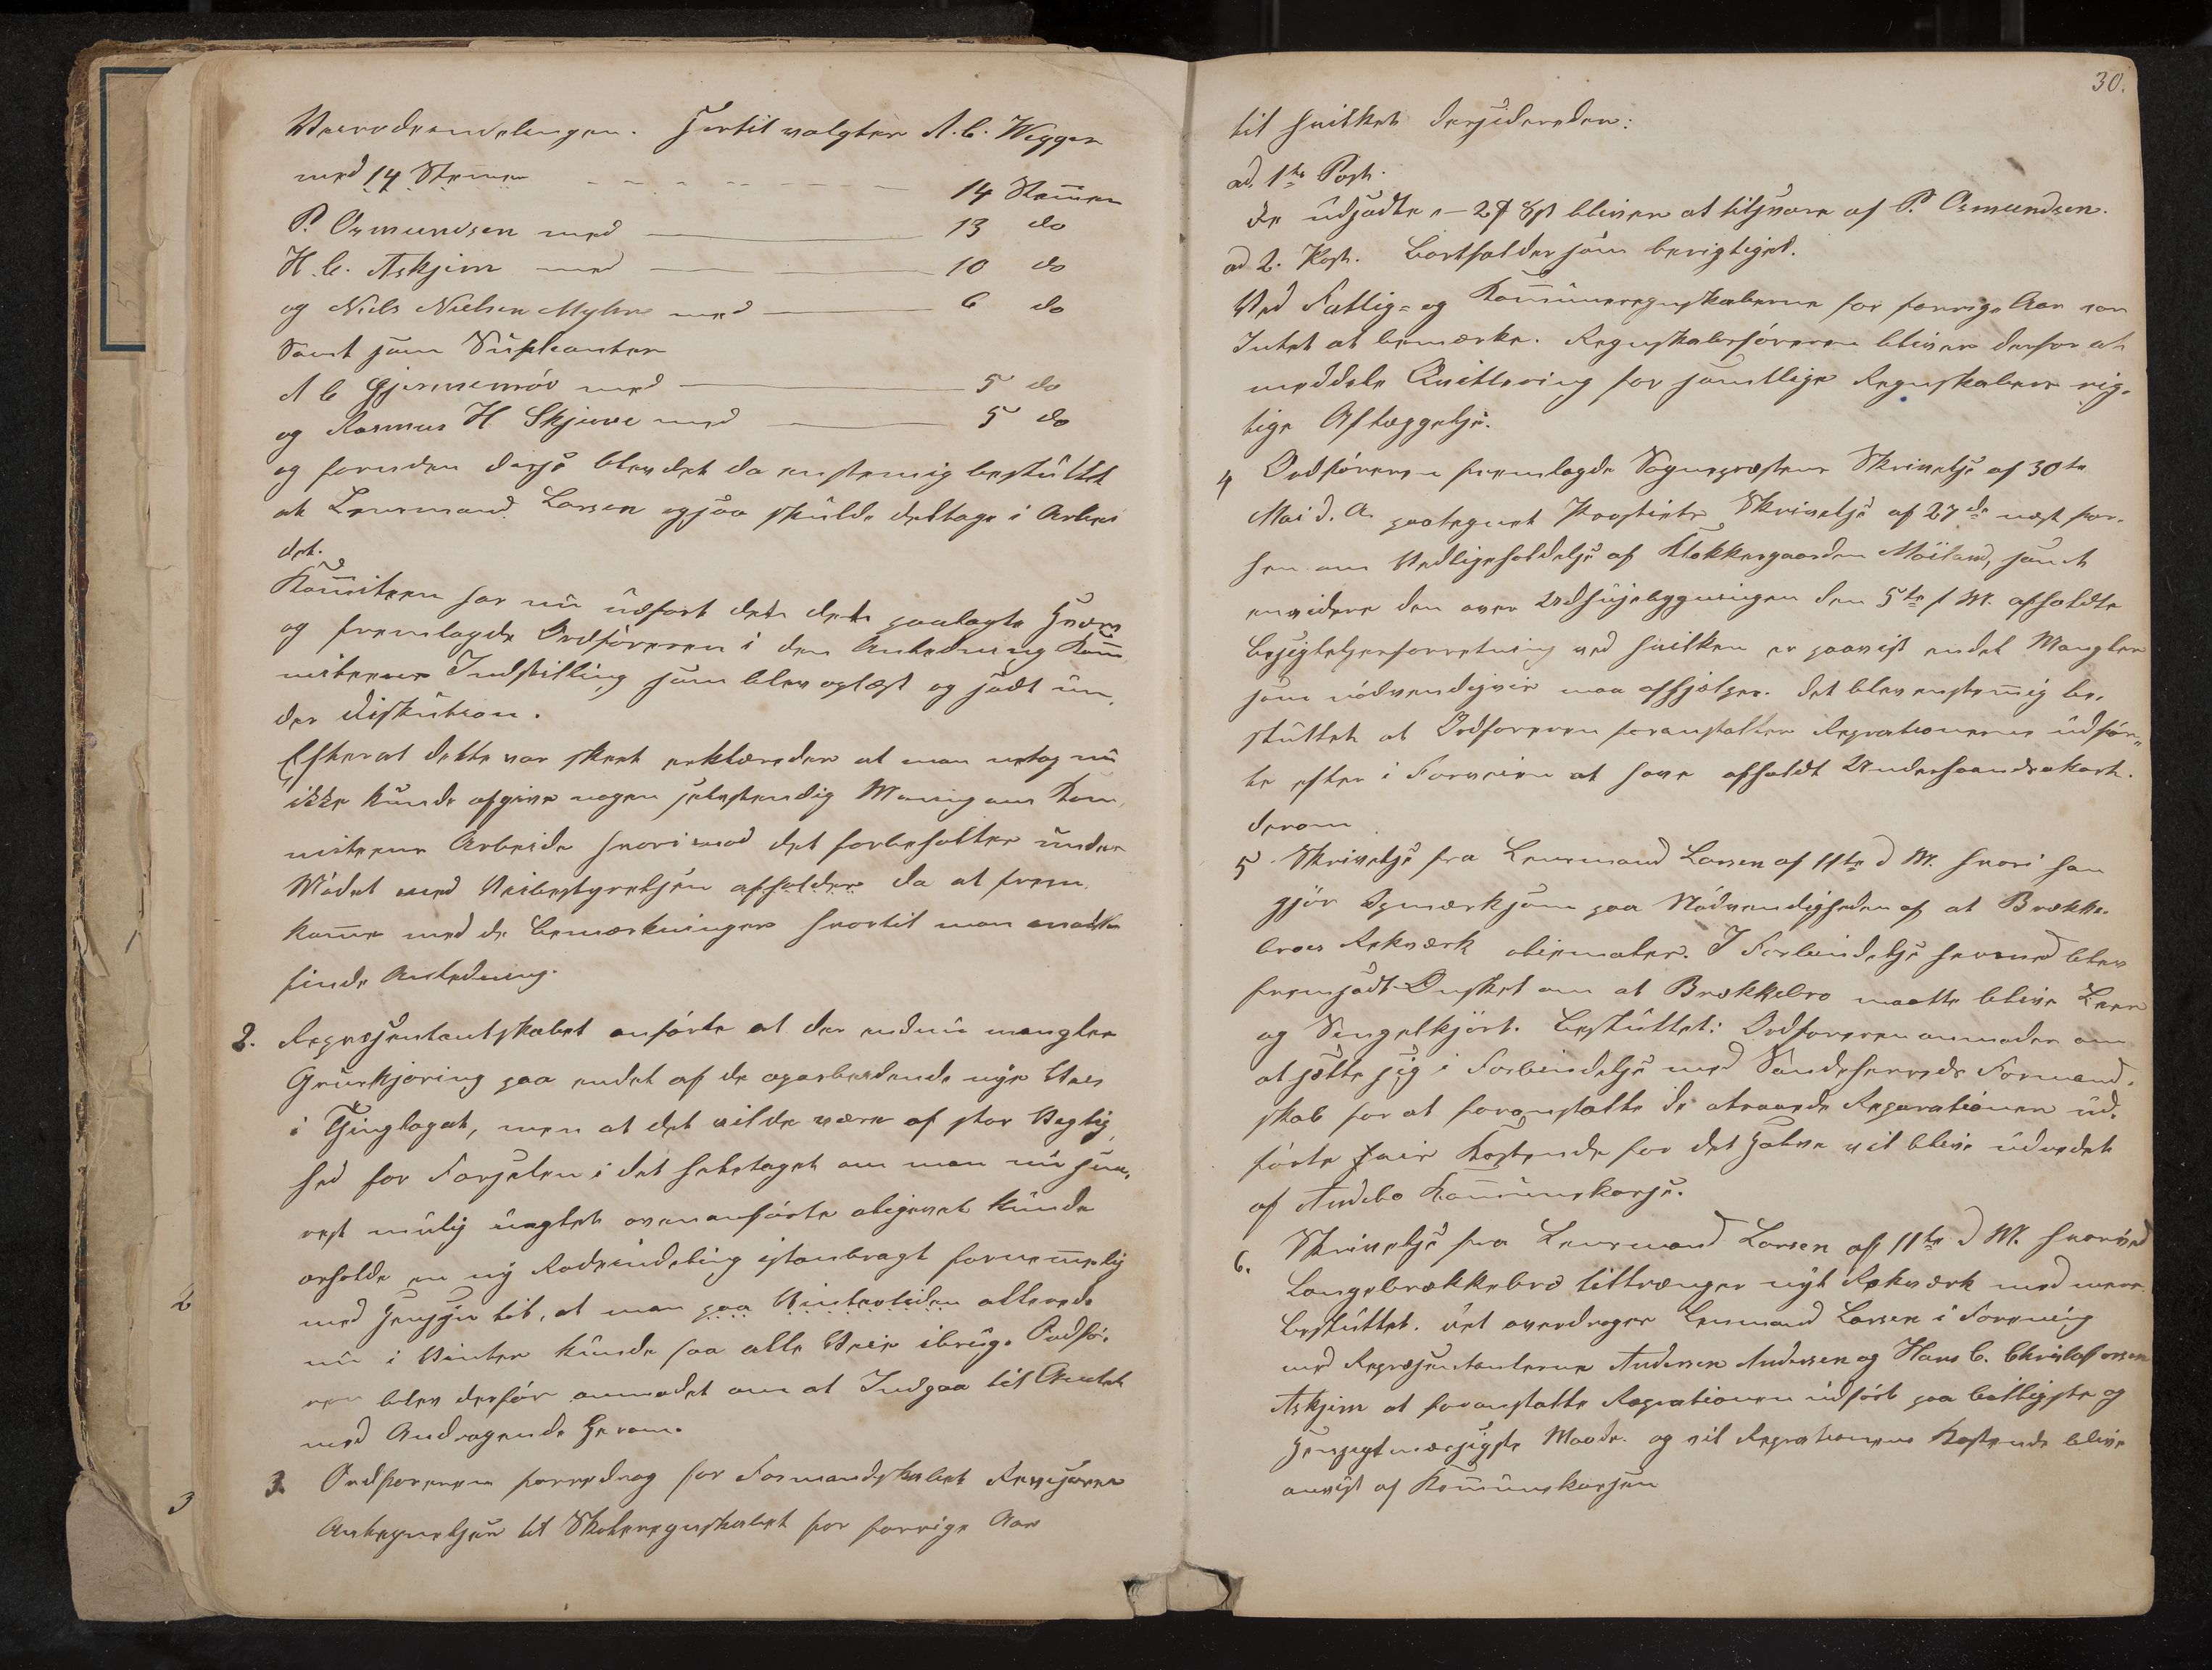 Veierodeindelingen. Hertil valgtes A. C. Wegger
med 14 Stemer - - - - - - - - 14 Stemer
P. Osmundsen med — 13 do
H. C. Askjem med — 10 do
og Niels Nielsen Myhre med — 6 do
Samt som Supleanter
A C Gjermerød med — 5 do
og Rasmus H Skjauve med — 5 do
og foruden disse blev det da enstemig besluttet
at Lensmand Larsen ogsaa skulde deltage i Arbei
det.
Komiteen har nu udført det dets paalagte Hværv
og fremlagde Ordføreren i den Anledning Kom
miteens Indstilling som blev oplæst og sadt un-
der Diskution.
Efterat dette var skeet erklæredes at man netop nu
ikke kunde afgive nogen selvstendig Mening om Kom
miteens Arbeide hvorimod det forbeholtes under
Mødet med Veibestyrelsen afholdes da at frem
komme med de Bemærkninger hvortil man maatte
finde Anledning.
2. Repræsentantskabet anførte at der endnu mangler
Gruskjøring paa endel af de oparbeidende nye Veie
i Thinglaget, men at det vilde være af stor Vegtig
hed for Forselen i det heletaget om man nu sna-
rest mulig uagtet ovenanførte alligevel kunde
erholde en ny Rodeindeling istanbragt fornemmelig
med Hensyn til, at man paa Vintertiden allerede
nu i Vinter kunde faa alle Veie ibrug. Ordfø-
ren blev derfor anmodet om at Indgaa til Amtet
med Andragende herom.
3. Ordføreren foredrog for Formandskabet Revisorens
Antegnelser til Skoleregnskabet for forrige Aar
30.
til hvilket desideredes:
ad. 1ste Post.
de udsadte - 2 β bliver at tilsvare af P. Osmundsen.
ad 2. Post. Bortfalder som berigtiget.
Ved Fattig= og Kommuneregnskaberne for forrige Aar var
Intet at bemærke. Regnskabsføreren bliver derfor at
meddele Quittering for samtlige Regnskabers rig-
tige Aflæggelse.
4 Ordføreren fremlagde Sogneprestens Skrivelse af 30te
Mai d. A. paategnet Provstiets Skrivelse af 27de næst for-
hen om Vedligeholdelse af Klokkergaarden Møiland, samt
envidere den over Udhusebygningen den 5te f M. afholdte
Besigtelsesforretning ved hvilken er paavist endel Mangler
som nødvendigvis maa afhjælpes. Det blev enstemig be-
sluttet at Ordføreren foranstalter Reparationerne udfør-
te efter i Forveien at have afholdt Underhaandsakort.
derom
5 Skrivelse fra Lensmand Larsen af 11te d M. hvori han
gjør Opmærksom paa Nødvendigheden af at Brække-
broes Rekværk oliemales. I Forbindelse hermed blev
fremsadt Ønsket om at Brækkebro maatte blive Leer
og Singelkjørt. Besluttet: Ordføreren anmodes om
at sætte sig i Forbindelse med Sandeherreds Formand-
skab for at foranstalte de atraaede Reparationer ud-
førte hvis Kostende for det Halve vil blive udredet
af Andebo Kommunekasse.
6. Skrivelse fra Lensmand Larsen af 11te d M. hvorved
Langebrækkebro tiltrænger nyt Rekværk med mere.
Besluttet. Det overdrages Lensmand Larsen i Forening
med Repræsentanterne Andersen Andersen og Hans C. Christoffersen
Askjem at foranstalte Reprationen udført paa billigste og
Hensigtmæssigste Maade. og vil Reprationens Kostende blive
anvist af Kommunekassen
2
3